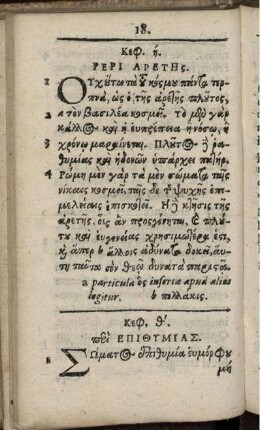 18.
Κεφ. ή.
ΠΕΡΙ ΑΡΕΤΗΣ.
1 Οὐχ οὕτω τὰ τοῦ κόσμου πάντα τερ-
πνὰ, ὡς ὁ τῆς ἀρετῆς πλοῦτος,
2 a τὸν βασιλέα κοσμεῖ. Τὸ μὲν γὰρ
κάλλος καὶ ἡ εὐπρέπεια ἢ νόσῳ, ἢ
3 χρόνῳ μαραίνεται. Πλοῦτος δὲ ῥα-
θυμίας καὶ ἡδονῶν ὑπάρχει πατήρ.
4 Ρώμη μὲν γὰρ τὰ μὲν σώματα τῆς
νίκαις κοσμεῖ, τὰς δὲ τ ψυχῆς ἐπι-
μελείας ἐπισκοτεῖ. Ἡ δὲ κτῆσις τῆς
ἀρετῆς, οἷς ἂν προσγένηται, καὶ πλού-
του καὶ εὐγενείας χρησιμωτέρα ἐστι,
καὶ ἅπερ b ἄλλοις ἀδύνατα δοκεῖ, αὕ-
τη ταῦτα σὺν θεῷ δυνατὰ
a particula ὃς inserta apud alios
legitur. b πολλάκις.
Κεφ. θ΄.
περὶ ΕΠΙΘΥΜΙΑΣ.
Σώματος ἐπιθυμία εὐμόρφου
μὴ